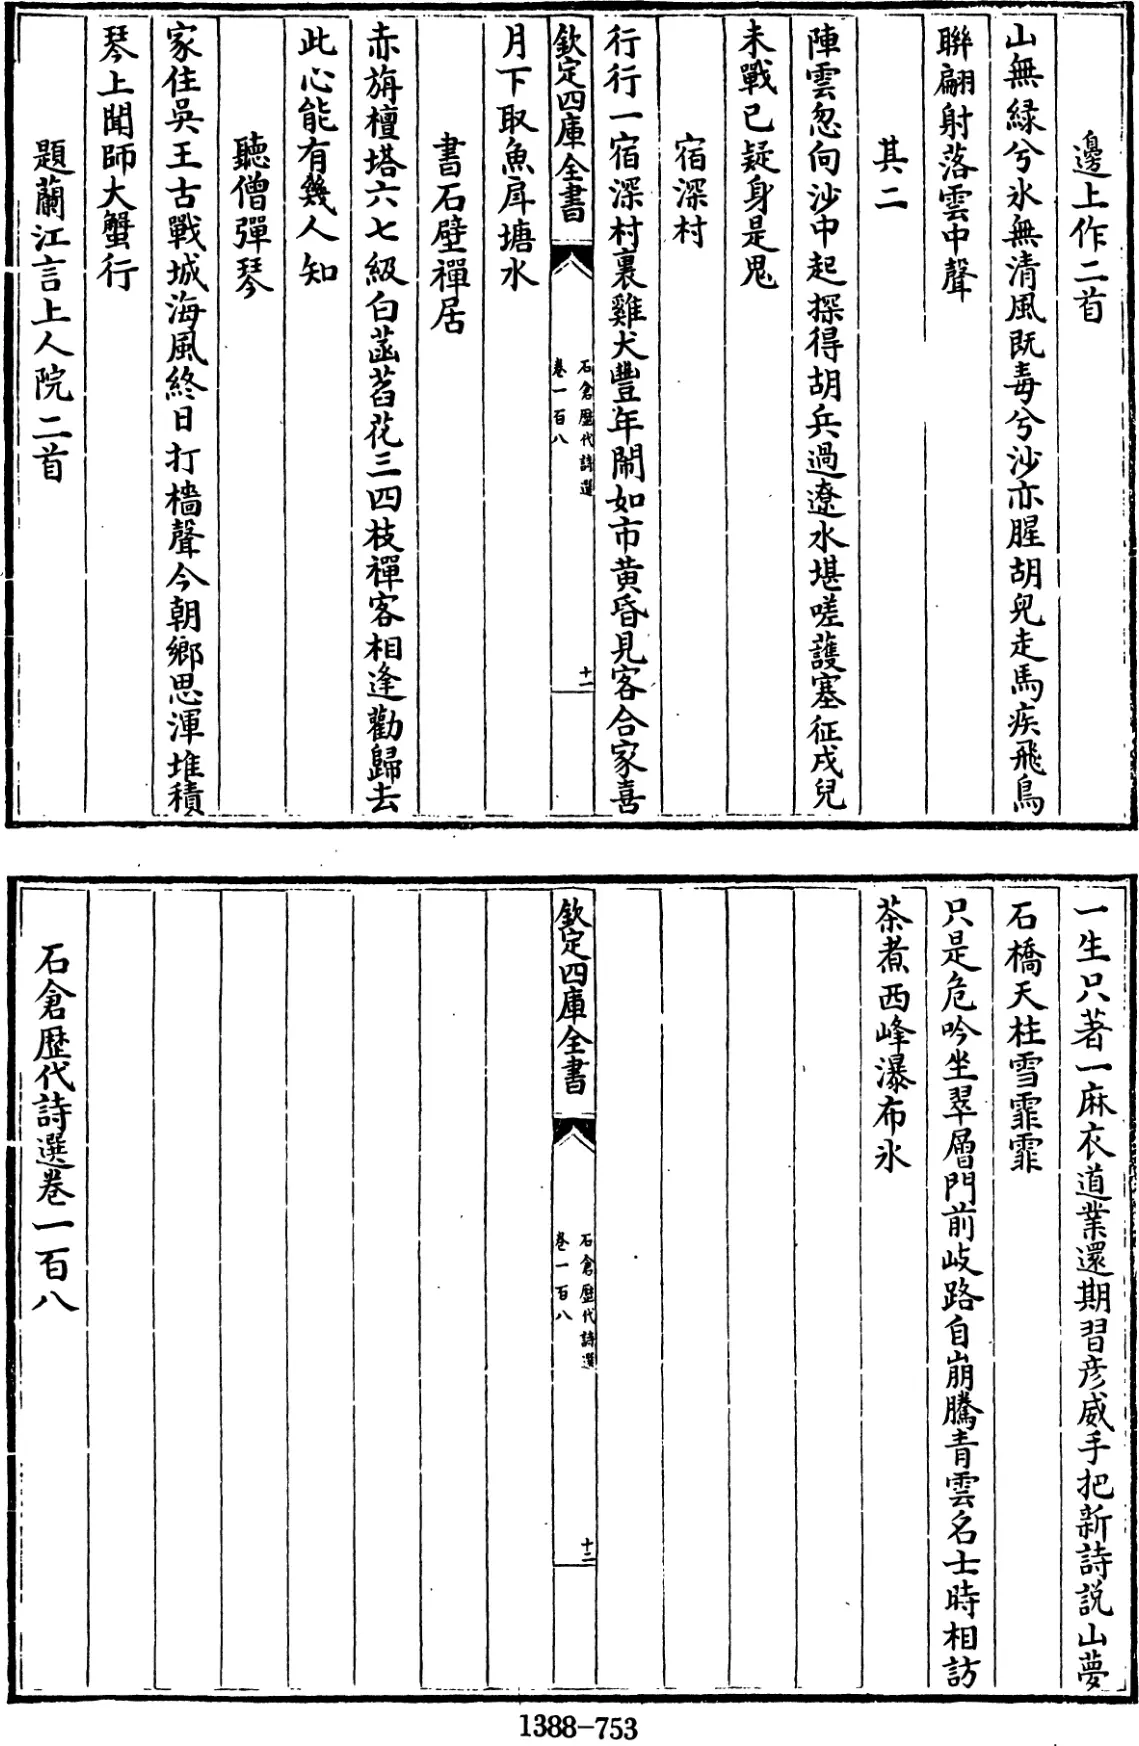 邊上作二首
山無緑兮氷無清風既毒兮沙亦腥胡兒走馬疾飛鳥
聯翩射落雲中聲
其二
陣雲忽向沙中起探得胡兵過遼水堪嗟護塞征戍兒
未戰已疑身是鬼
宿深村
行行一宿深村裏雞犬豐年鬧如市黄昏見客合家喜
欽定四庫全書
石倉歴代詩選
卷一百八
十一
月下取魚戽塘水
書石壁禪居
赤旃檀塔六七級白菡萏花三四枝禪客相逢勸歸去
此心能有幾人知
聽僧彈琴
家住吳王古戰城海風終日打檣聲今朝鄉思渾堆積
琴上聞師大蟹行
題蘭江言上人院二首
一生只著一麻衣道業還期習彦威手把新詩説山夢
石橋天柱雪霏霏
只是危吟坐翠層門前岐路自崩騰青雲名士時相訪
茶煮西峰瀑布氷
欽定四庫全書
石倉歴代詩選
卷一百八
十二
石倉歴代詩選卷一百八
1388-753